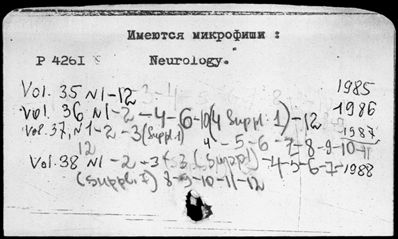 Имеются микрофиши :
P 426I Neurology.
Vol. 35 N1-12 1985
Vol. 36 N1-2-4-(6-10(4 Suppl. 1)-12 1986
Vol. 37, N1-2-3(Suppl.1) 4-5-6-7-8-9-10-11 1987
12
Vol. 38 N1-2-3+3 (Suppl)-4-5-6-7-1988
(Suppl. I) 8-9-10-11-12